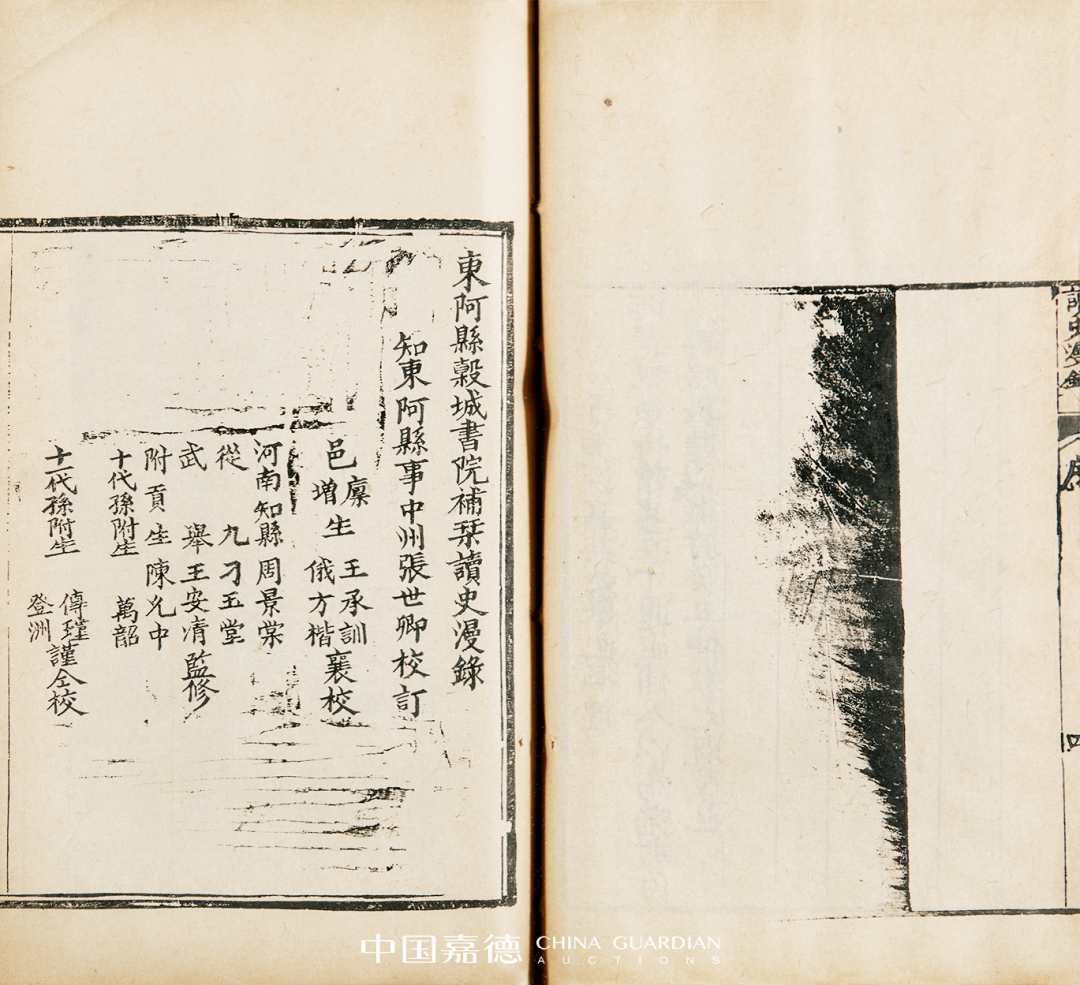 東阿縣穀城書院補栞讀史漫錄
知東阿縣事中州張世卿校訂
邑廩增生 王承訓 俄方楷 襄校
河南知縣周景棠
從九刁玉堂
武舉王安清監修
附貢生陳允中
十代孫附生 萬韶
十一代孫附生 傳瑾 登洲 謹仝校
讀史漫錄
中国嘉德 CHINA GUARDIAN
AUCTIONS